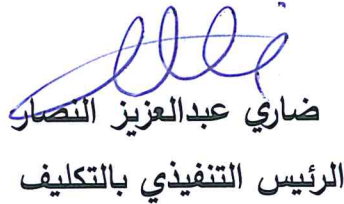 ضاري عبدالعزيز النصار
الرئيس التنفيذي بالتكليف